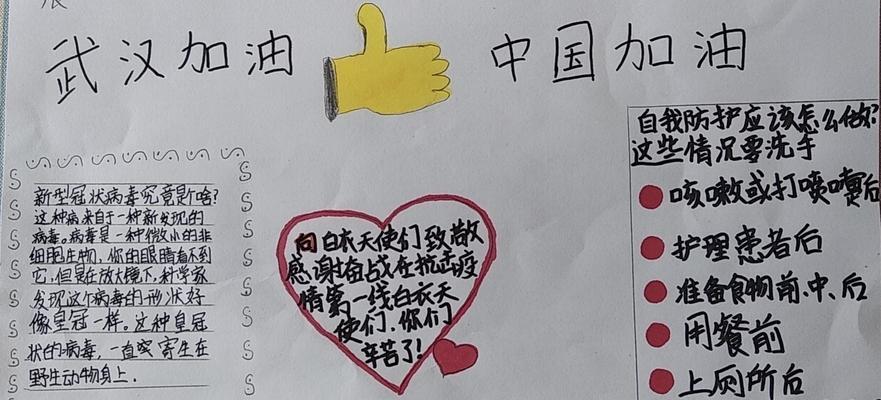 武汉加油
中国加油
新型冠状病毒究竟是个啥?
这种病来自于一种新发现的
病毒。病毒是一种微小的非
细胞生物,你的眼睛看不到
它,但是在放大镜下,科学家
发现这个病毒的形状好
像皇冠一样。这种皇冠
状的病毒,一直寄生在
野生动物身上.
向白衣天使们致敬
感谢奋战在抗击疫
情第一线白衣天
使们.你们
辛苦了!
自我防护应该怎么做?
这些情况要洗手
咳嗽或打喷嚏后
护理患者后
准备食物前、中、后
用餐前
上厕所后